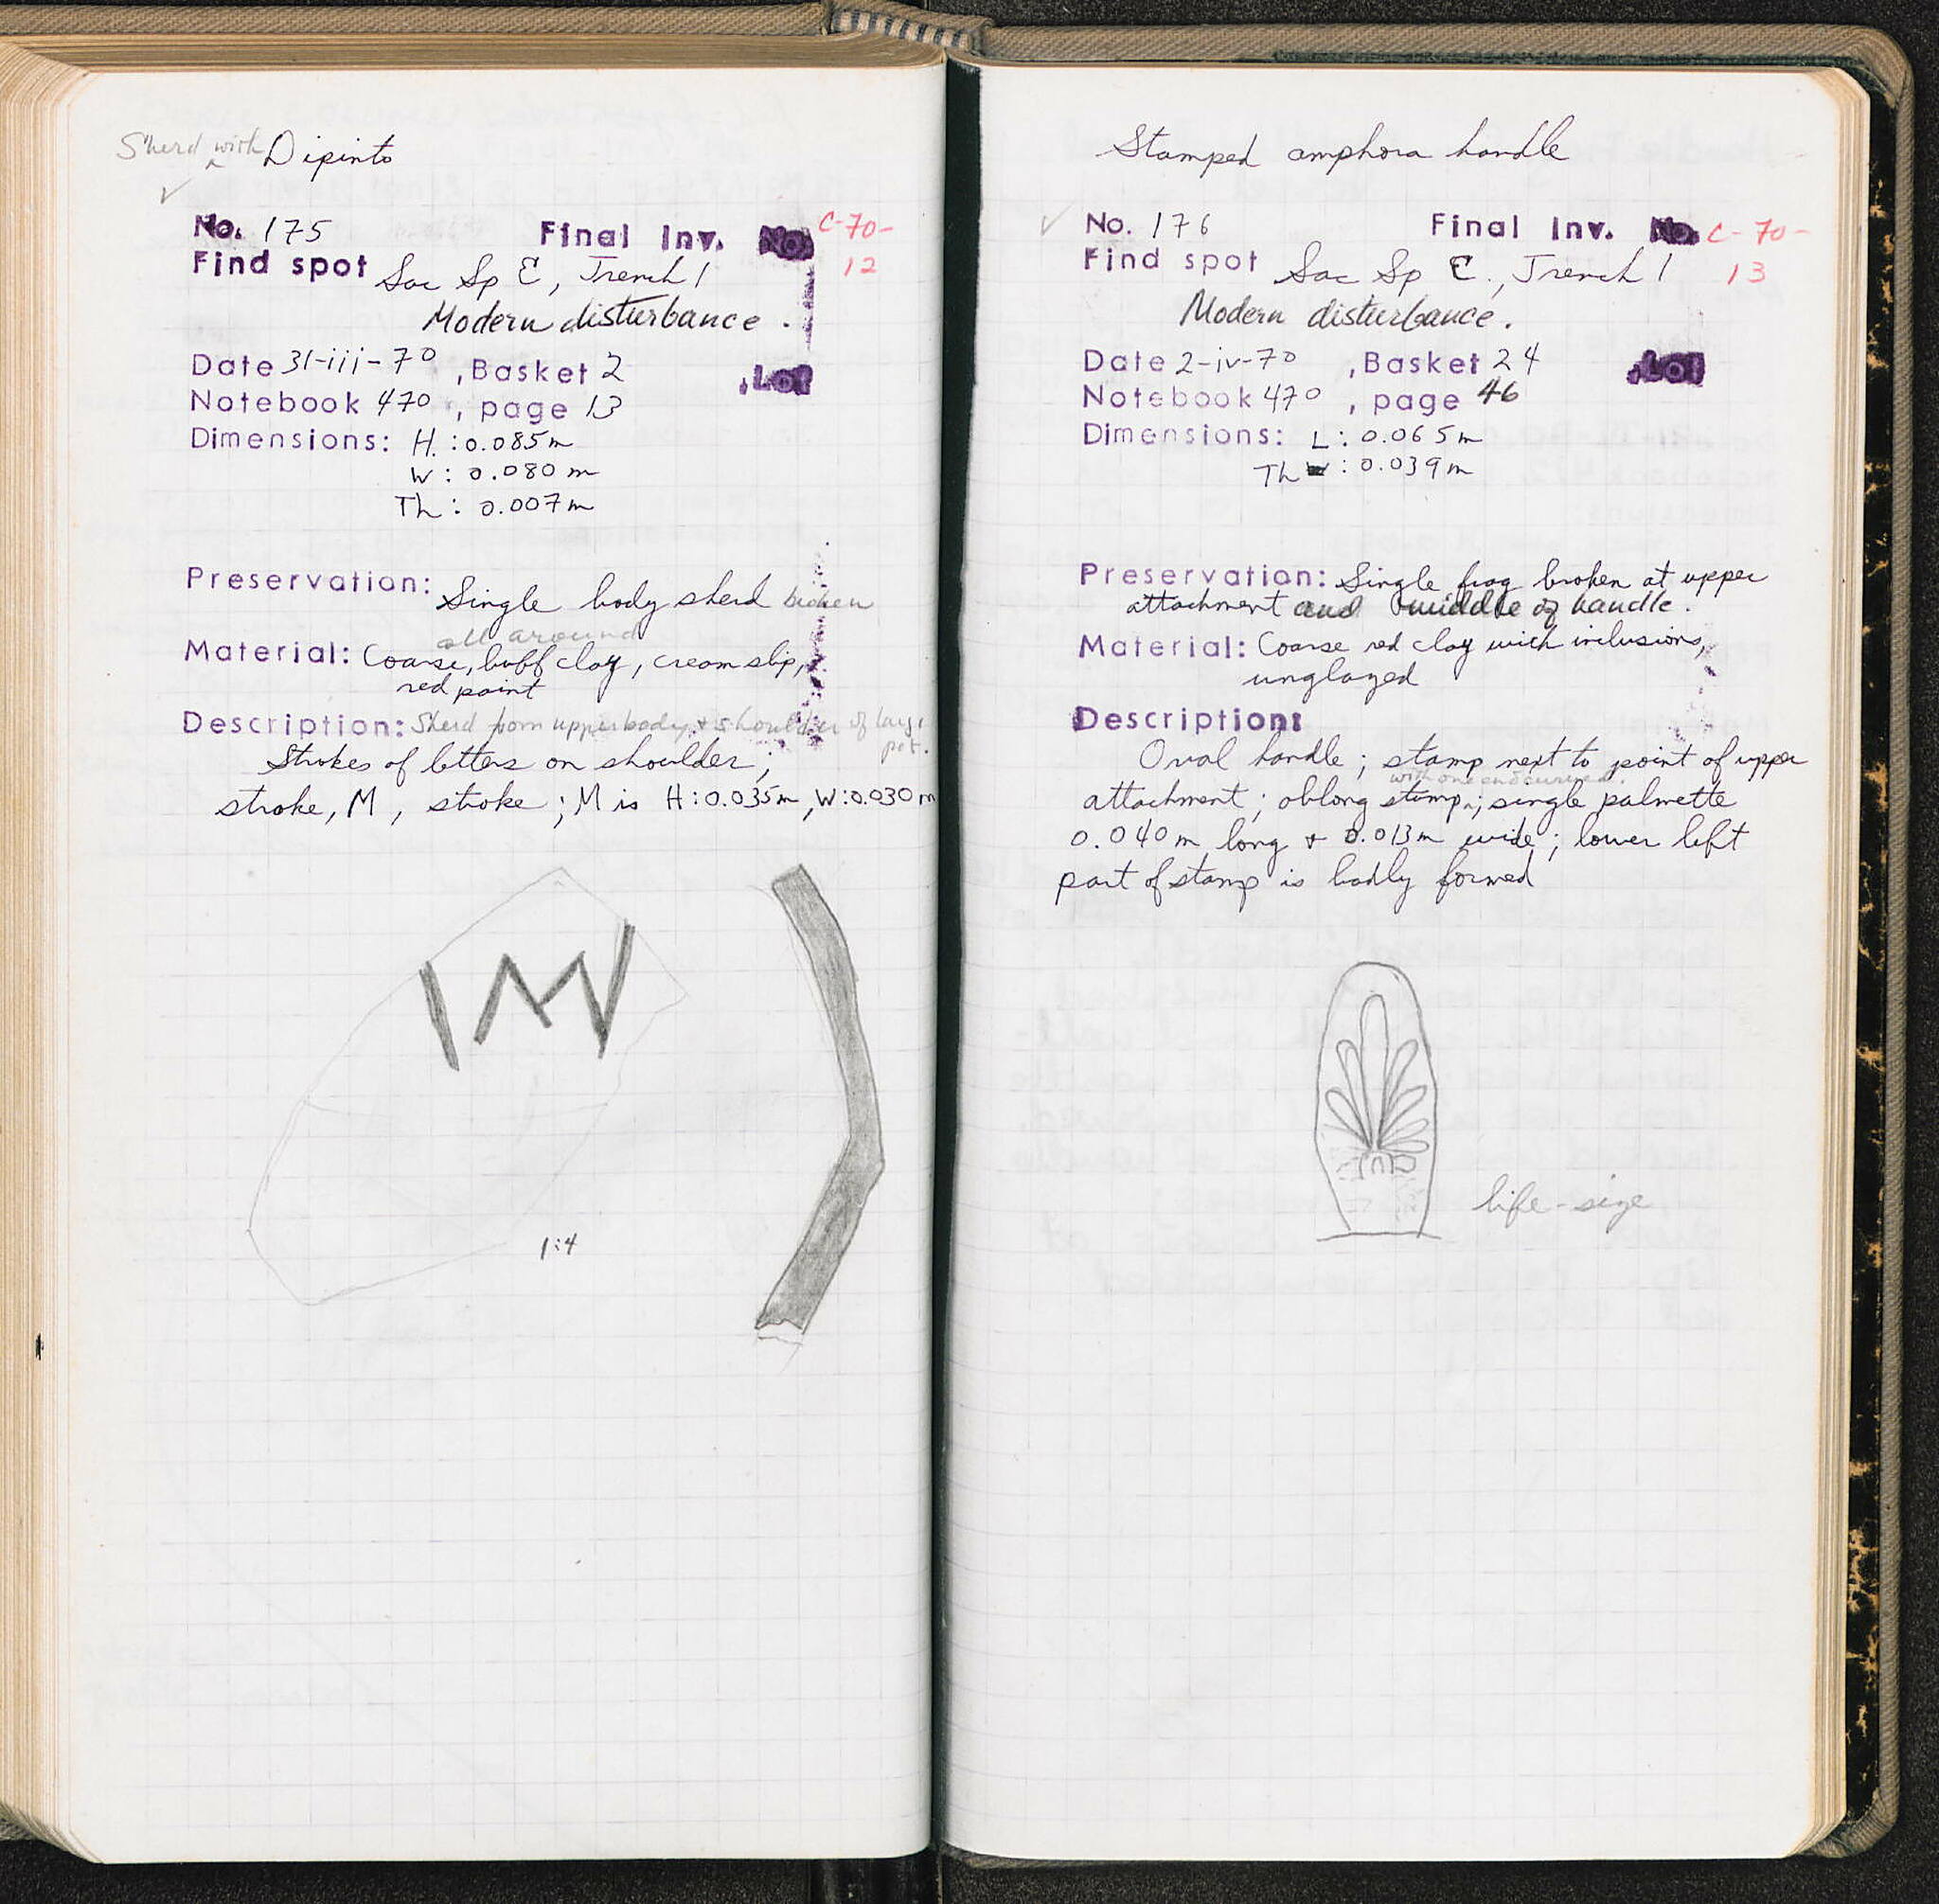 Sherd with Dipinto
✓
No. 175 Final Inv. No. C-70-
12
Find spot Sac Sp E, Trench 1
Modern disturbance.
Date 31-iii-70, Basket 2 , Lot
Notebook 470, page 13
Dimensions: H.: 0.085m
W: 0.080 m
Th: 0.007m
Preservation: Single body sherd broken
all around
Material: Coarse, buff clay, cream slip,
red paint
Description: Sherd from upper body & shoulder of large
pot.
Strokes of letters on shoulder;
stroke, M, stroke; M is H: 0.035m, W: 0.030m
1:4
Stamped amphora handle
✓ No. 176 Final Inv. No. C-70-
13
Find spot Sac Sp E., Trench 1
Modern disturbance.
Date 2-iv-70, Basket 24 , Lot
Notebook 470, page 46
Dimensions: L: 0.065m
Th: 0.039m
Preservation: Single frag broken at upper
attachment and middle of handle.
Material: Coarse red clay with inclusions,
unglazed
Description:
Oval handle; stamp next to point of upper
with one end curved.
attachment; oblong stamp; single palmette
0.040m long & 0.013m wide; lower left
part of stamp is badly formed
life-size